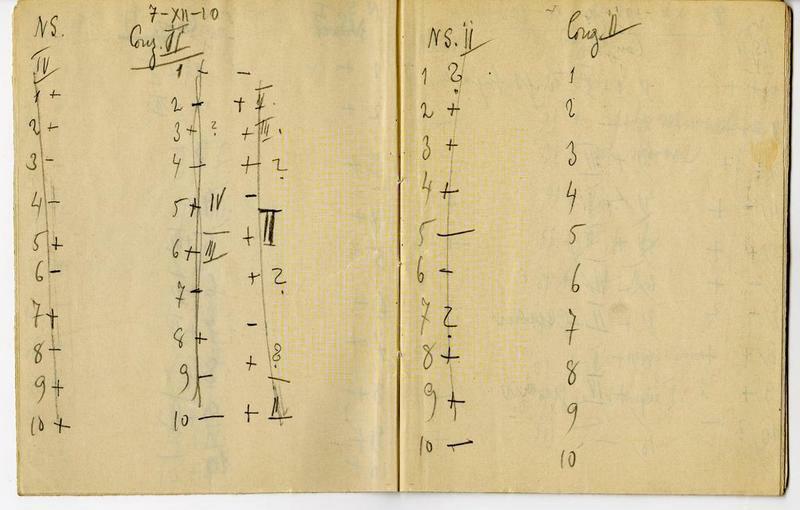 7-XII-10
NS.
IV
1 +
2 +
3 -
4 -
5 +
6 -
7 +
8 -
9 +
10 +
Conj. II
1 + -
2 + + II.
3 + ? + III.
4 - + ?
5 + IV -
6 + III + II
7 - + ?
8 + -
9 - + ?
10 - + II
NS. ii
1 ?
2 +
3 +
4 +
5 -
6 -
7 ?
8 +
9 +
10 -
Conj. II
1
2
3
4
5
6
7
8
9
10